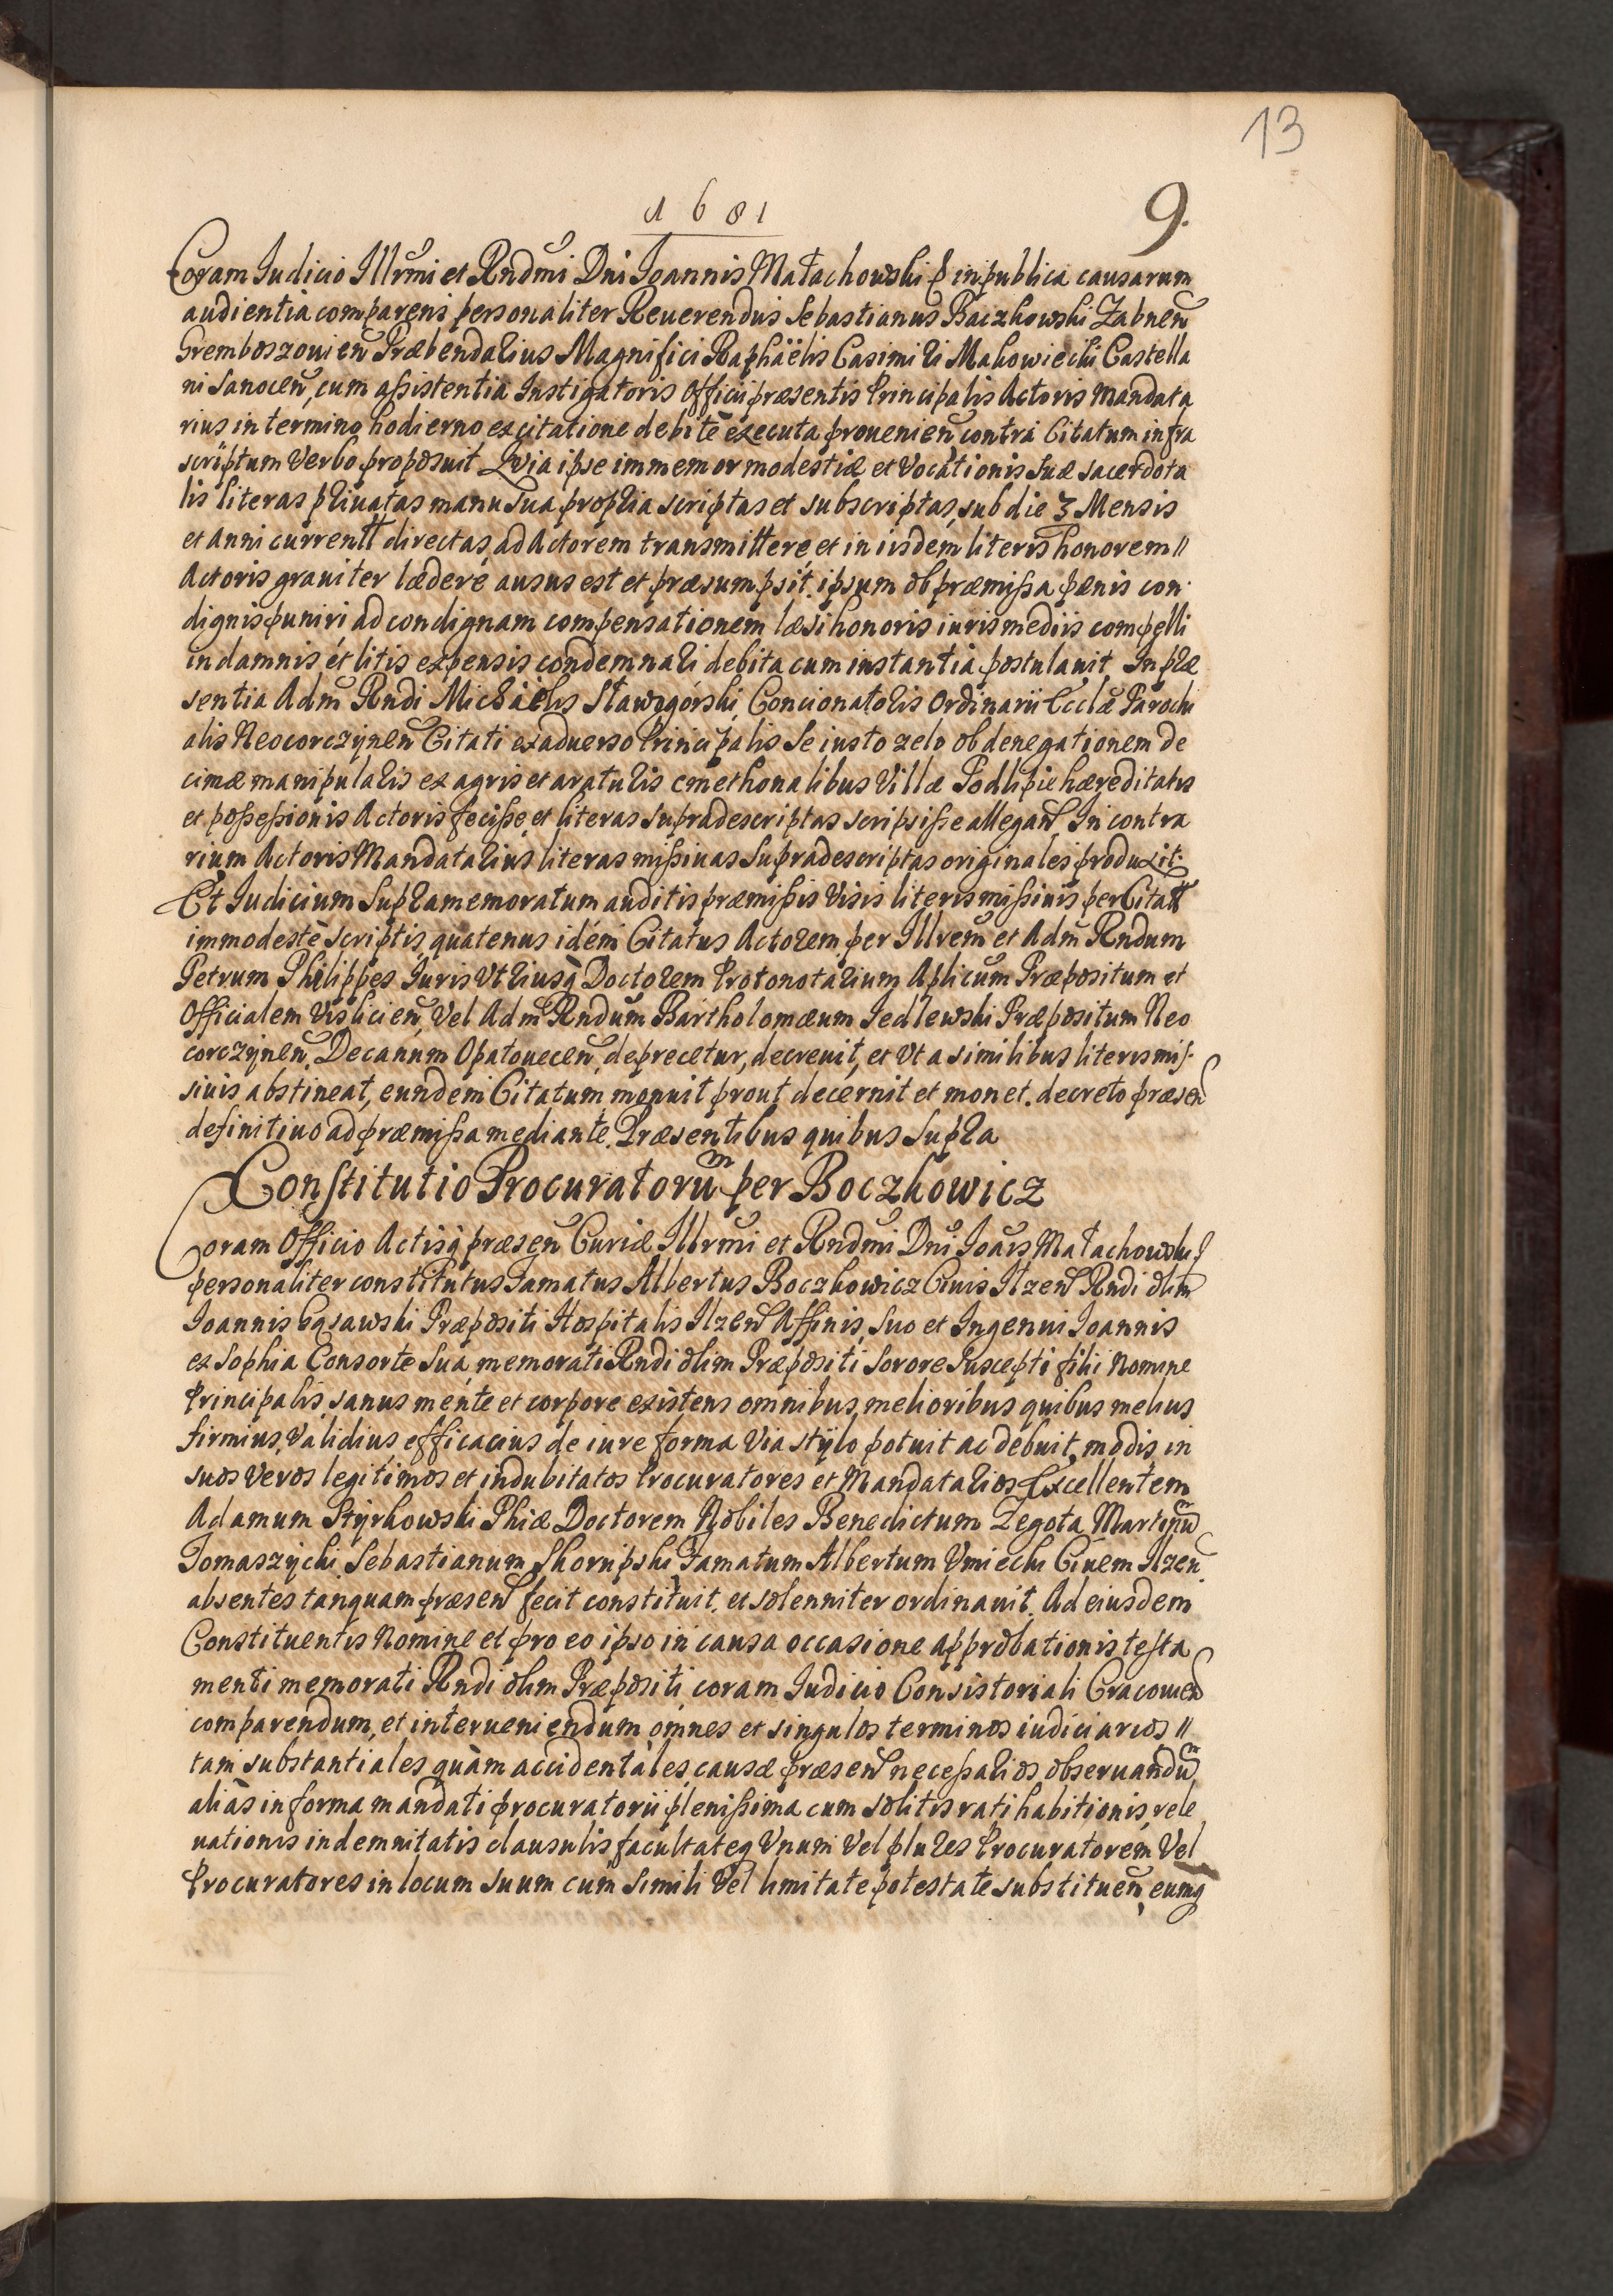 13
1681
9.
Coram Iudicio Illrmi et Rndmi Dni Ioannis Małachowski in publica causarum
audientia comparens personaliter Reuerendus Sebastianus Baczkowski Zabnen
Gremboszouien Præbendarius Magnifici Raphaëlis Casimiri Makowiecki Castella
ni Sanocen, cum assistentia Instigatoris Officii præsentis Principalis Actoris Mandata
rius in termino hodierno, ex citatione debitè executa prouenien contra Citatum infra
scriptum Verbo proposuit. Quia ipse immemor modestiæ et Vocationis suæ sacerdota
lis literas priuatas manu sua propria scriptas et subscriptas, sub die 3 Mensis
et Anni currentt directas, ad Actorem transmittere, et in iisdem literis honorem //
Actoris grauiter lædere ausus est et præsumpsit. ipsum ob præmissa pænis con
dignis puniri ad condignam compensationem læsi honoris iuris mediis compelli
in damnis et litis expensis condemnari debita cum instantia postulauit. In præ
sentia Adm Rndi Michaëlis Sławogórski Concionatoris Ordinarii Ecclæ Parochi
alis Neocorczynen Citati ex aduerso Principalis se iusto zelo ob denegationem de
cimæ manipularis ex agris et araturis cmethonalibus Villæ Podlipie hæreditatis
et possessionis Actoris fecisse et literas supradescriptas scripsisse allegan. In contra
rium Actoris Mandatarius, literas missiuas supradescriptas originales produxit.
Et Iudicium supramemoratum auditis præmissis Visis literis missiuis per Citatt
immodestè scriptis, quatenus idem Citatus Actorem per Illrem et Adm Rndum
Petrum Philippes Iuris Vtriusq Doctorem Protonotarium Aplicum Præpositum et
Officialem Vislicien, Vel Adm Rndum Bartholomæum Jedlewski Præpositum Neo
corczynen, Decanum Opatouecen, deprecetur, decreuit, et Vt a similibus literis mis
siuis abstineat, eundem Citatum monuit prout decernit et monet. decreto præsen
definitiuo ad præmissa mediante. Præsentibus quibus supra
Constitutio Procuratorum per Boczkowicz
Coram Officio Actisq præsen Curiæ Illrmi et Rndmi Dni Ioais Małachowski
personaliter constitutus Famatus Albertus Boczkowicz Ciuis Ilzen Rndi olim
Ioannis Præpositi Hospitalis Ilzen Affinis, suo et Ingenui Ioannis
ex Sophia Consorte sua, memorati Rndi olim Præpositi Sorore suscepti filii Nomine
Principalis, sanus mente et corpore existens omnibus, melioribus quibus melius
firmius, Validius efficacius de iure forma Via stylo potuit ac debuit, modis, in
suos Veros legitimos et indubitatos Procuratores et Mandatarios Excellentem
Adamum Styrkowski Phiæ Doctorem, Nobiles Benedictum Zegota, Martinu
Tomaszycki, Sebastianum Skorupski Famatum Albertum Vmiecki Ciuem Ilzen
absentes tanquam præsen fecit constituit, et solenniter ordinauit. Ad eiusdem
Constituentis Nomine et pro eo ipso in causa occasione approbationis testa
menti memorati Rndi olim Præpositi, coram Iudicio Consistoriali Cracouien
comparendum, et interueniendum, omnes et singulos terminos iudiciarios //
tam substantiales quàm accidentales, causæ præsen necessarios obseruandu
aliàs in forma mandati procuratorii plenissima cum solitis ratihabitionis, rele
uationis indemnitatis clausulis facultateq Vnum Vel plures Procuratorem, Vel
Procuratores in locum suum cum simili Vel limitate potestate substituen, eumq